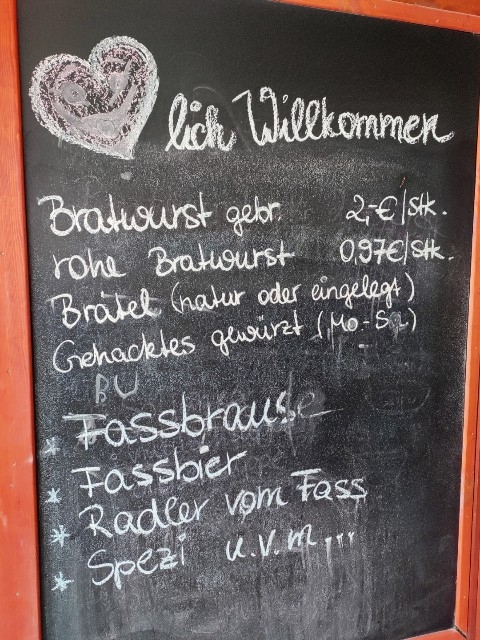 lich Willkommen
Bratwurst gebr. 2,-€/Stk.
rohe Bratwurst 0,97€/Stk.
Brätel (natur oder eingelegt)
Gehacktes gewürzt (Mo-Sa)
BU
* Fassbrause
* Fassbier
* Radler vom Fass
* Spezi u.v.m...